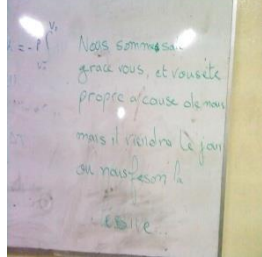 Nous sommes sal
grace vous, et vous ete
propre a cause de nous
mais il viendra le jour
ou nous feson la